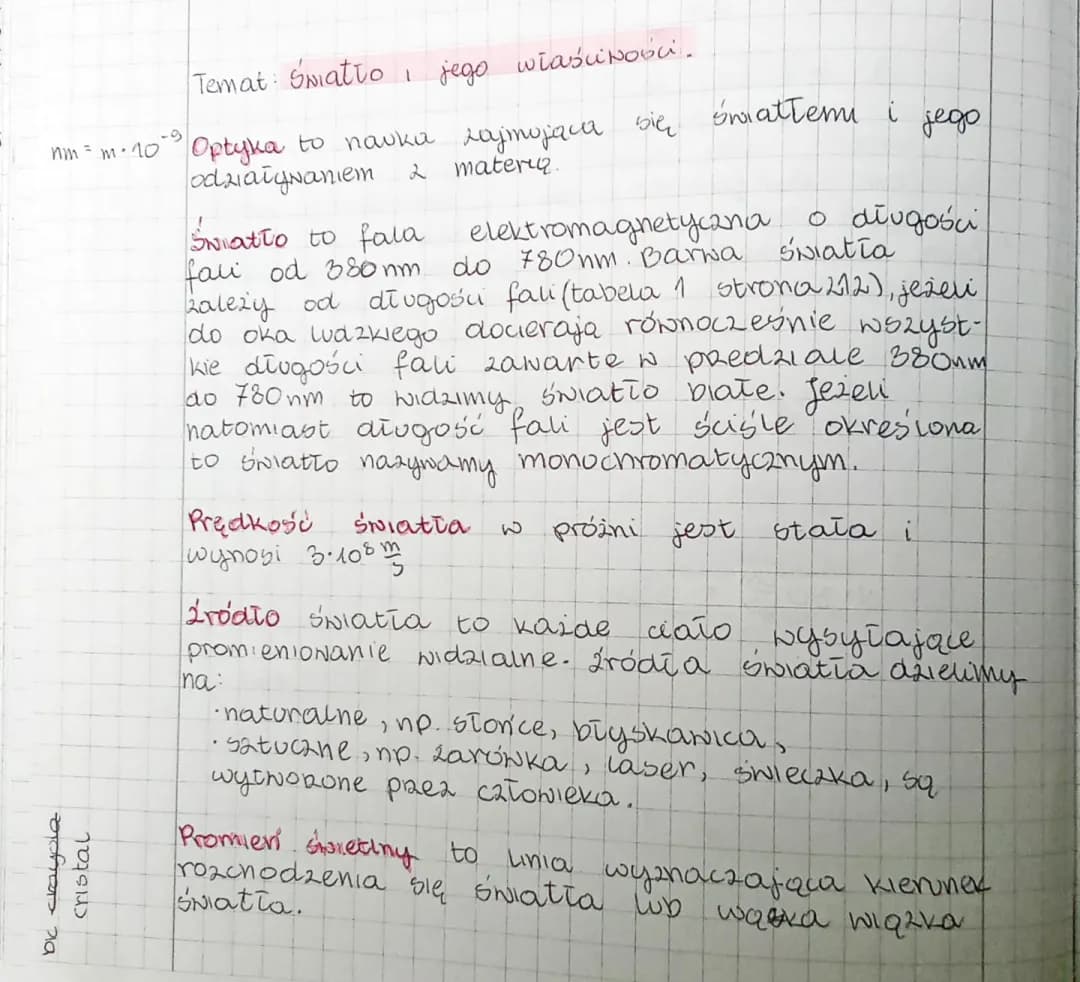 Temat: Światło i jego właściwości.
nm = m · 10⁻⁹
Optyka to nauka zajmująca się światłem i jego
odziaływaniem z materią.
Światło to fala elektromagnetyczna o długości
fali od 380nm do 780nm. Barwa światła
zależy od długości fali (tabela 1 strona 212), jeżeli
do oka ludzkiego docieraja równocześnie wszyst-
kie długości fali zawarte w przedziale 380nm
do 780nm to widzimy światło białe. Jeżeli
natomiast długość fali jest ściśle określona
to światło nazywamy monochromatycznym.
Prędkość światła w próżni jest stała i
wynosi 3·10⁸ m/s
Źródło światła to każde ciało wysyłające
promieniowanie widzialne. Źródła światła dzielimy
na:
· naturalne, np. słońce, błyskawica,
· sztuczne, np. żarówka, laser, świeczka, są
wytworzone przez człowieka.
Promień świetlny to linia wyznaczająca kierunek
rozchodzenia się światła lub wąska wiązka
światła.
bx
cristal